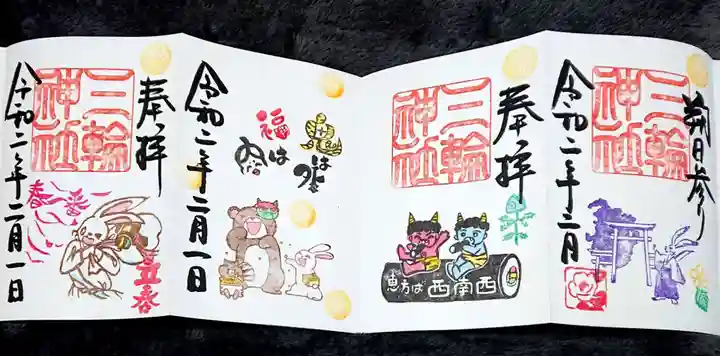 朔日参り
三輪
神社
令和二年二月
奉拝
三輪
神社
恵方は西南西
鬼は外
福は内
令和二年二月一日
奉拝
三輪
神社
春一番
立春
令和二年二月一日